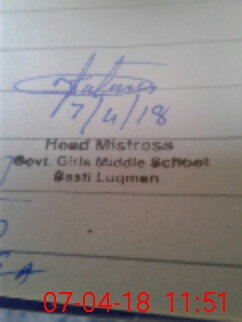 7/4/18
Head Mistress
Govt. Girls Middle School
Basti Luqman
07-04-18 11:51